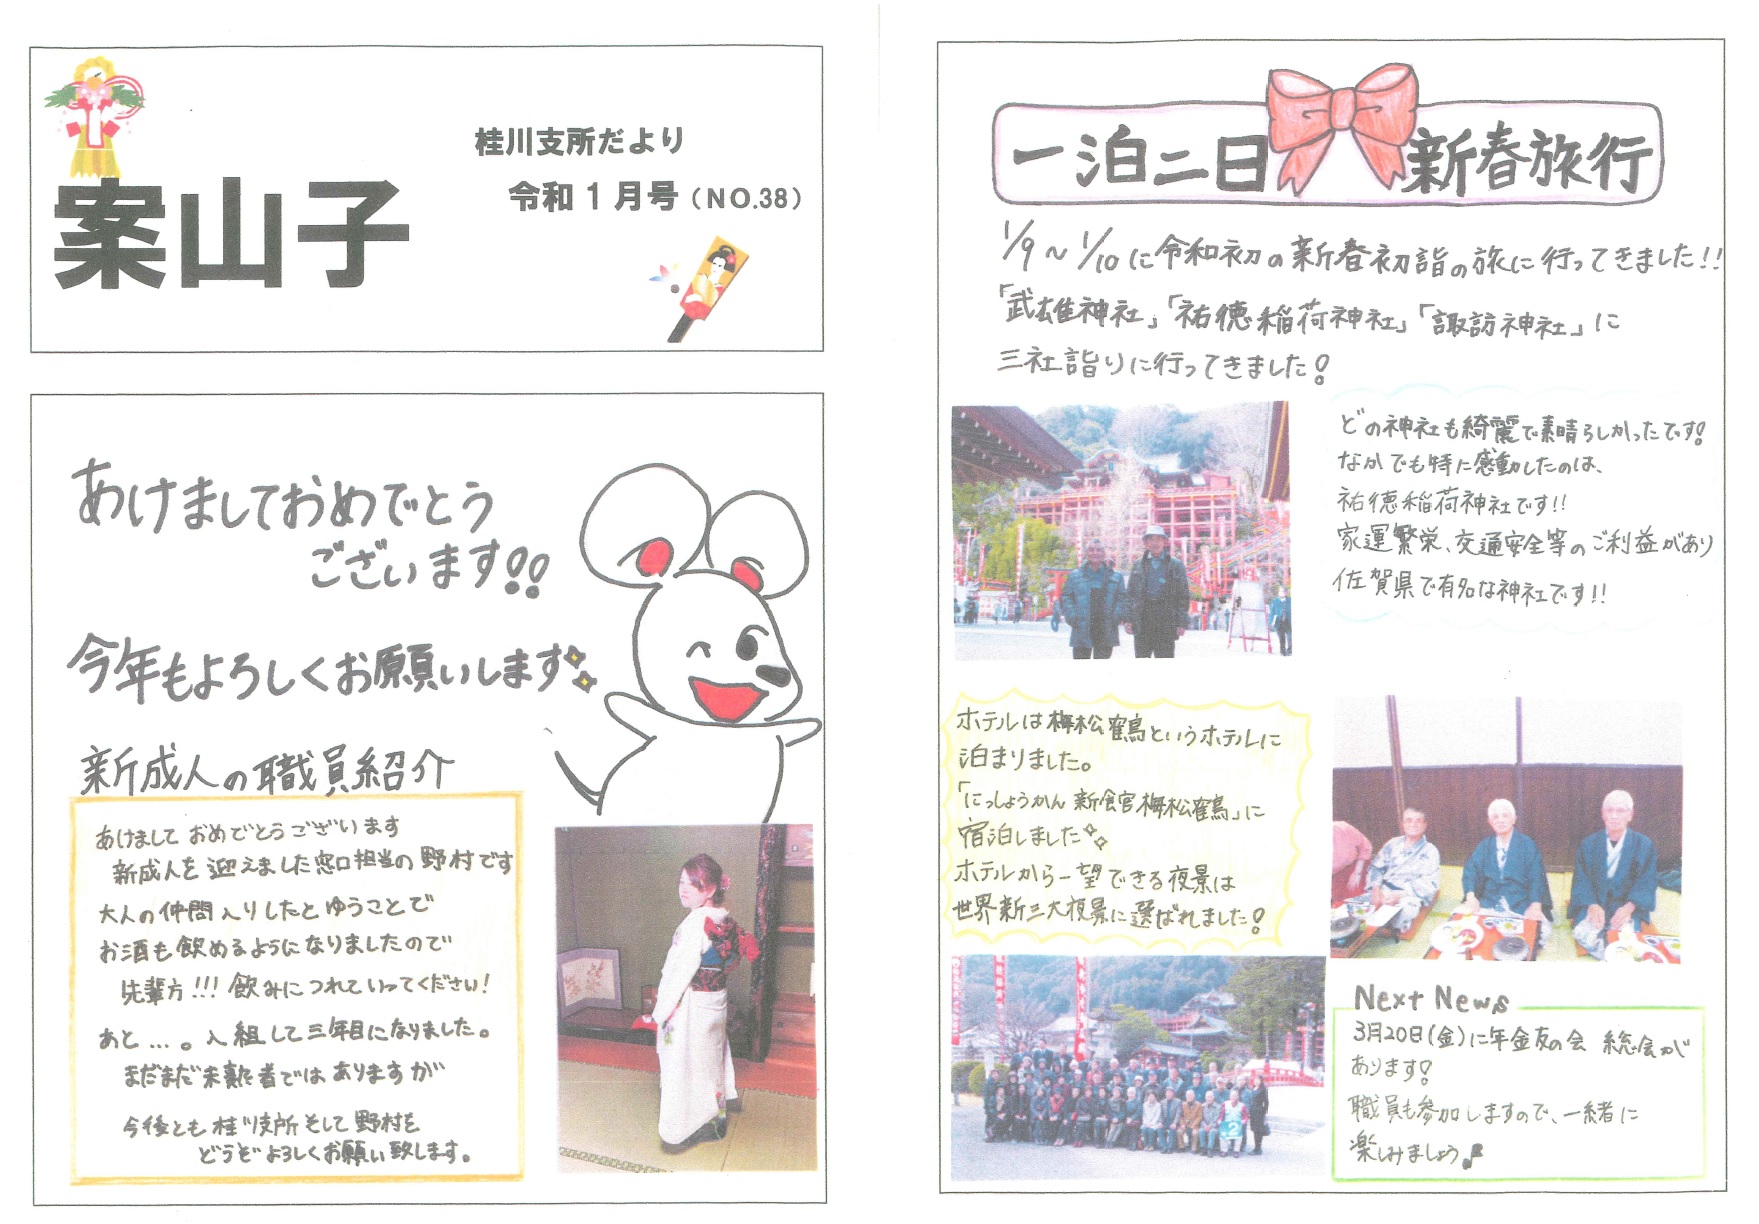 桂川支所だより
令和1月号(NO.38)
案山子
あけましておめでとう
ございます!!
今年もよろしくお願いします
新成人の職員紹介
あけまして おめでとうございます
新成人を迎えました窓口担当の野村です
大人の仲間入りしたとゆうことで
お酒も飲めるようになりましたので
先輩方!!!飲みにつれていってください!
あと…。入組して三年目になりました。
まだまだ未熟者ではありますが
今後とも桂川支所そして野村を
どうぞよろしくお願い致します。
一泊二日 新春旅行
1/9~1/10に令和初の新春初詣の旅に行ってきました!!
「武雄神社」「祐徳稲荷神社」「諏訪神社」に
三社詣りに行ってきました!
どの神社も綺麗で素晴らしかったです!
なかでも特に感動したのは、
祐徳稲荷神社です!!
家運繁栄、交通安全等のご利益があり
佐賀県で有名な神社です!!
ホテルは梅松鶴というホテルに
泊まりました。
「にっしょうかん 新館梅松鶴」に
宿泊しました
ホテルから一望できる夜景は
世界新三大夜景に選ばれました!
2
Next News
3月20日(金)に年金友の会 総会が
あります!
職員も参加しますので、一緒に
楽しみましょう♪